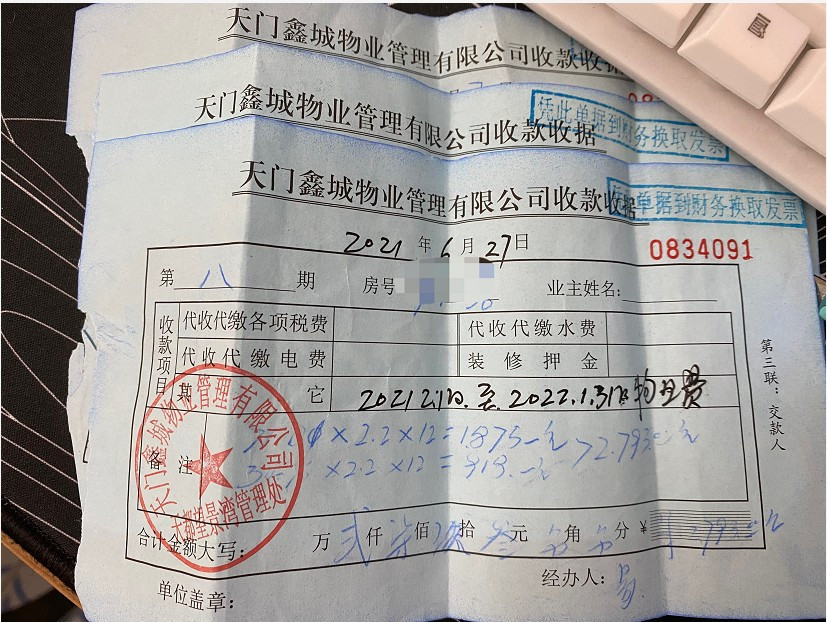 天门鑫城物业管理有限公司收款收据
天门鑫城物业管理有限公司收款收据
凭此单据到财务换取发票
天门鑫城物业管理有限公司收款收据
单据到财务换取发票
2021 年 6 月 27 日
0834091
第 八 期 房号 业主姓名:
收款项目
代收代缴各项税费
代收代缴水费
代收代缴电费
装修押金
其它
2021 2.1日.至.2022.1.31日物业费
备注
×2.2×12=1875-元
×2.2×12=918.-元
>2.793.-元
天门鑫城物业管理有限公司
管理处
合计金额大写: 万 贰 仟 柒 佰 拾 叁 元 角 分 ¥
单位盖章:
经办人:
第三联：交款人